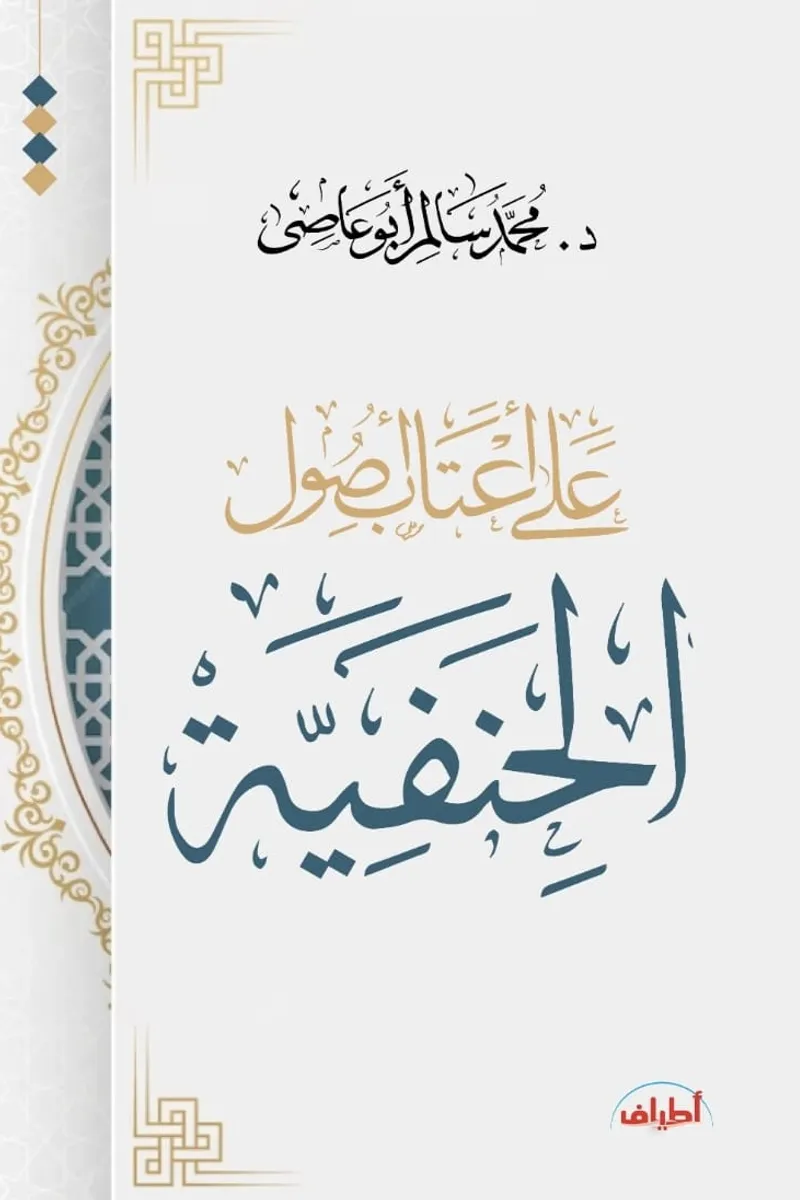 د. مُحَمَّد سَالِم أَبُو عَاصِي
عَلَى أَعْتَاب أُصُول
الحَنَفِيَّة
أطياف